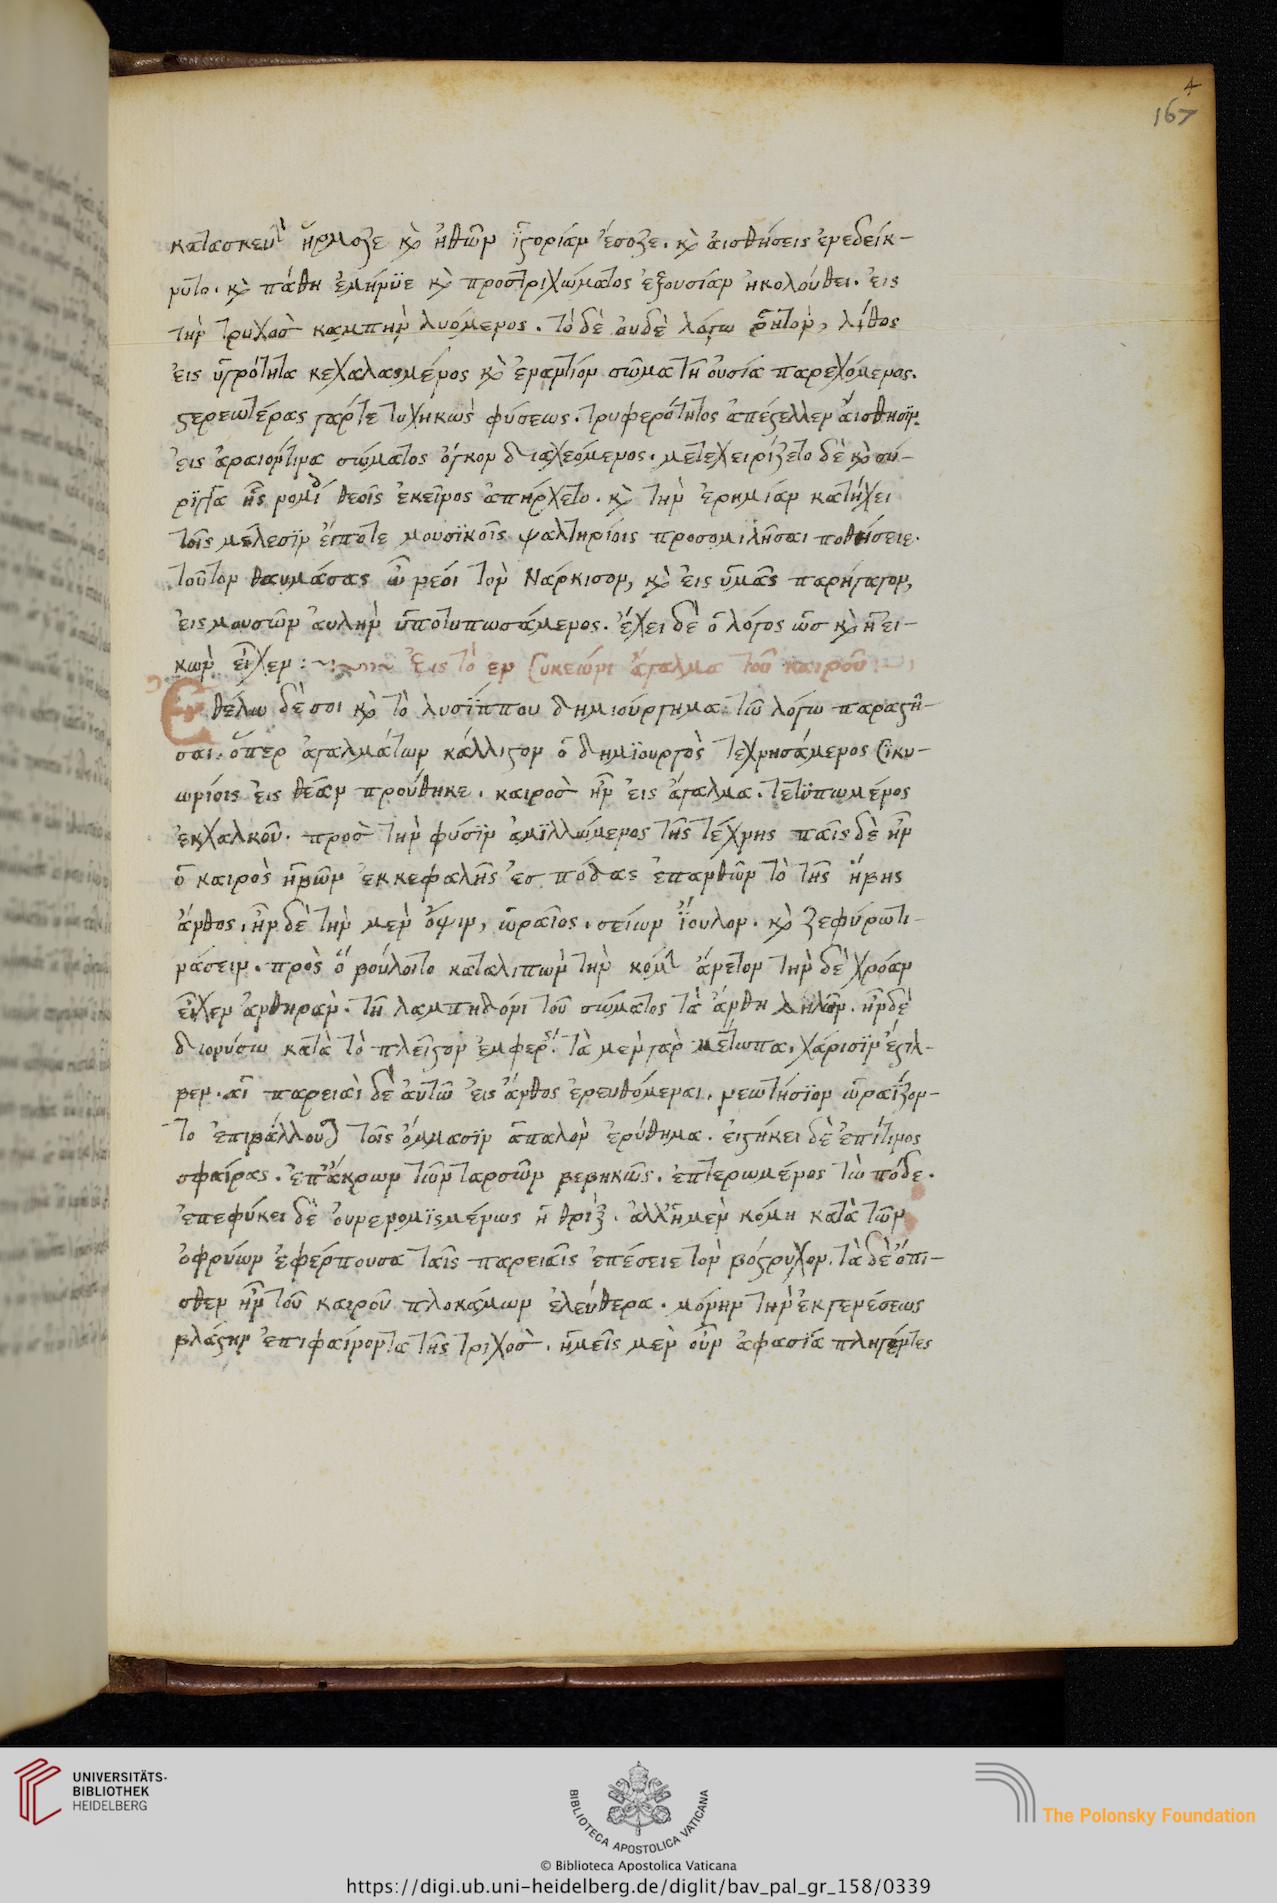 4
167
κατασκευὴ ἥρμοζε κ̀ ἠθῶν ἱστορίαν ἔσωζε. κ̀ ἀισθήσεις ἐνεδείκ-
νυτο. κ̀ πάθη ἐμήνϋε κ̀ προστριχώματος ἐξουσίαν ἠκολούθει. ἐις
τὴν τρυχὸσ καμπὴν λυόμενος. τὸ δὲ ουδὲ λόγω ῥητὸν, λίθος
ἐις ὑγρότητα κεχαλασμένος κ̀ ἐναντίον σῶμα τῆ ὀυσία παρεχόμενος.
στερεωτέρας γάρτε τυχηκὼς φύσεως. τρυφερότητος ἀπέστελλεν ἄισθησϊν.
ἐις ἀραιόντινα σώματος ὄγκον διαχεόμενος. μετεχειρίζετο δὲ κ̀ σύ-
ριγγα ἧς νομί θεοῖς ἐκεῖνος ἀπήρχετο. κ̀ τὴν ἐρημίαν κατήχει
τοῖς μέλεσϊν ἔιποτε μουσϊκοῖς ψαλτηρίοις προσομιλῆσαι ποθήσειε.
τοῦτον θαυμάσας ὦ νεόι τὸν Νάρκισον, κ̀ ἐις ὑμᾶς παρήγαγον,
ἐις μουσῶν ἀυλὴν ὑποτυπωσάμενος. ἔχει δὲ ὁ λόγος ὡσ κ̀ ἡ ἐι-
κὼν ἐῖχεν :~ Ἐις τὸ εν συκεώνι ἄγαλμα τοῦ καιροῦ
Εθέλω δὲ σοι κ̀ τὸ λυσΐππου δημιούργημα τῶ λόγω παραστῆ-
σαι. ὅπερ ἀγαλμάτων κάλλιστον ὁ δημϊουργὸς τεχνησάμενος σικυ-
ωνίοις ἐις θέαν προύθηκε. καιροσ ἦν ἐις ἄγαλμα. τετϋπωμένος
ἐκχαλκοῦ. προσ τὴν φύσϊν ἁμϊλλώμενος τῆς τέχνης παῖς δὲ ἦν
ὁ καιρὸς ἡβῶν ἐκκεφαλῆς ἐσ πόδας ἐπανθῶν τὸ τῆς ἥβης
άνθος. ἦν δὲ τὴν μὲν ὄψιν, ὡραῖος. σείων ἴουλον. κ̀ ζεφύρωτι-
νάσειν. πρὸς ὅ βούλοιτο καταλιπὼν τὴν κόμ ἄνετον τὴν δὲ χρόαν
εῖχεν ἀνθηρὰν. τῆ λαμπηδόνι τοῦ σώματος τὰ ἄνθη δηλῶν. ἦν δὲ
διονύσω κατὰ τὸ πλεῖστον ἐμφερ. τὰ μὲν γὰρ μέτωπα, χάρισϊν ἔστιλ-
βεν. αἱ παρειαὶ δὲ ἀυτῶ ἐις ἄνθος ἐρευθόμεναι. νεωτήσϊον ὡραΐζον-
το ἐπιβάλλουσ τοῖς ὄμμασϊν ἁπαλὸν ἐρύθημα. ἑιστήκει δὲ ἐπίτινος
σφαίρας. ἐπἄκρων τῶν ταρσῶν βεβηκῶς. ἐπτερωμένος τὼ πόδε.
ἐπεφύκει δὲ ὀυνενομϊσμένως ἡ θρὶξ. ἀλλἡμὲν κόμη κατὰ τῶν
ὀφρύων ἐφέρπουσα ταῖς παρειαῖς ἐπέσειε τὸν βόστρυχον. τὰ δὲ ὄπι-
σθεν ἦν τοῦ καιροῦ πλοκάμων ἐλεύθερα. μόνην τὴν ἐκγενέσεως
βλάστην ἐπιφαίνοντα τῆς τριχοσ. ἡμεῖς μὲν οὖν ἀφασία πληγέντες
UNIVERSITÄTS-
BIBLIOTHEK
HEIDELBERG
BIBLIOTECA APOSTOLICA VATICANA
The Polonsky Foundation
© Biblioteca Apostolica Vaticana
https://digi.ub.uni-heidelberg.de/diglit/bav_pal_gr_158/0339